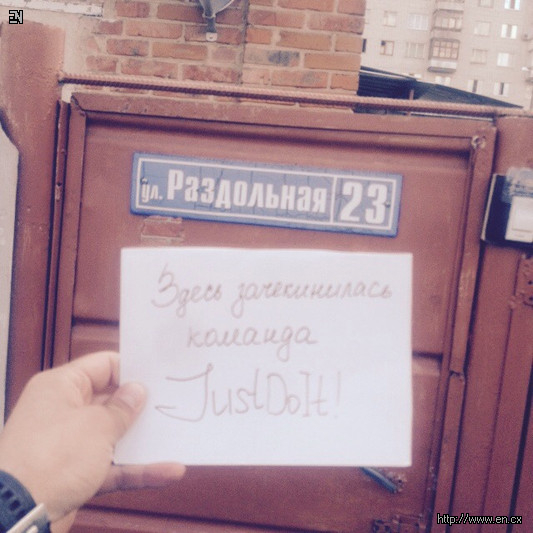 EN
ул. Раздольная 23
Здесь зачекинилась
команда
JustDoIt!
http://www.en.cx